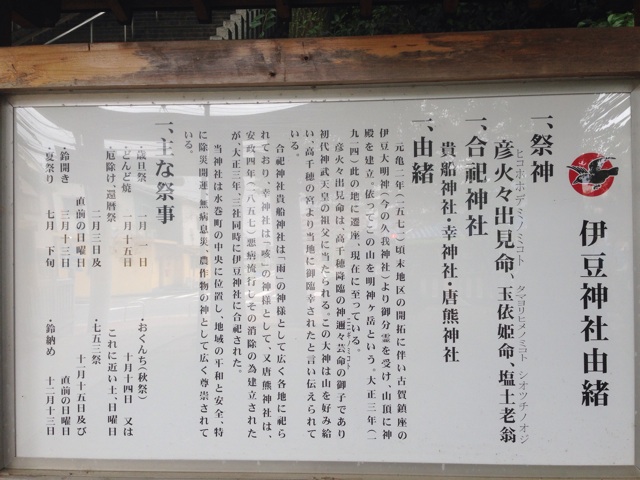 伊豆神社由緒
一、祭神
ヒコホホデミノミコト タマヨリヒメノミコト シオツチノオジ
彦火々出見命、玉依姫命、塩土老翁
一、合祀神社
貴船神社・幸神社・唐熊神社
一、由緒
元亀二年(一五七一)頃末地区の開拓に伴い古賀鎮座の
伊豆大明神(今の久我神社)より御分霊を受け、山頂に神
殿を建立。依ってこの山を明神ヶ岳という。大正三年(一
九一四)此の地に遷座、現在に至っている。
彦火々出見命は、高千穂降臨の神邇々芸命の御子であり
初代神武天皇の祖父に当たられる。この大神は山を好み給
い、高千穂の宮より当地に御臨幸されたと言い伝えられて
いる。
合祀神社貴船神社は「雨」の神様として広く各地に祀ら
れており、幸神社は「咳」の神様として、又唐熊神社は、
安政四年(一八五七)悪病流行しその消除の為建立された
が、大正三年、三社同時に伊豆神社に合祀された。
当神社は水巻町の中央に位置し、地域の平和と安全、特
に除災開運、無病息災、農作物の神として広く尊崇されて
いる。
一、主な祭事
・歳旦祭 一月 一日
・どんど焼 一月十五日
・厄除け、還暦祭
二月三日及び
直前の日曜日
・鈴開き 三月十三日
・夏祭り 七月 下旬
・おくんち(秋祭)
十月十四日 又は
これに近い土、日曜日
・七五三祭
十一月十五日及び
直前の日曜日
・鈴納め 十二月十三日